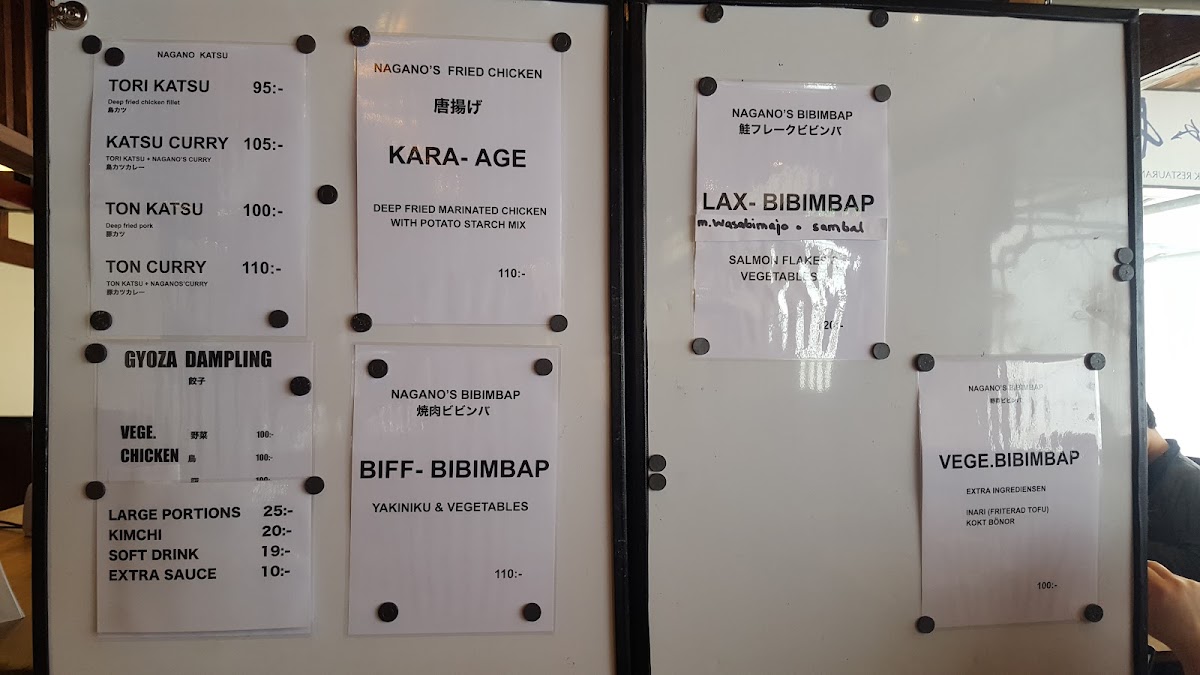 NAGANO KATSU
TORI KATSU 95:-
Deep fried chicken fillet
鳥カツ
KATSU CURRY 105:-
TORI KATSU + NAGANO'S CURRY
鳥カツカレー
TON KATSU 100:-
Deep fried pork
豚カツ
TON CURRY 110:-
TON KATSU + NAGANOS'CURRY
豚カツカレー
GYOZA DAMPLING
餃子
VEGE. 野菜 100:-
CHICKEN 鳥 100:-
LARGE PORTIONS 25:-
KIMCHI 20:-
SOFT DRINK 19:-
EXTRA SAUCE 10:-
NAGANO'S FRIED CHICKEN
唐揚げ
KARA- AGE
DEEP FRIED MARINATED CHICKEN
WITH POTATO STARCH MIX
110:-
NAGANO'S BIBIMBAP
焼肉ビビンバ
BIFF- BIBIMBAP
YAKINIKU & VEGETABLES
110:-
NAGANO'S BIBIMBAP
鮭フレークビビンバ
LAX- BIBIMBAP
m.wasabimajo. sambal
SALMON FLAKES
VEGETABLES
NAGANO'S BIBIMBAP
野菜ビビンバ
VEGE.BIBIMBAP
EXTRA INGREDIENSEN
INARI (FRITERAD TOFU)
KOKT BÖNOR
100:-